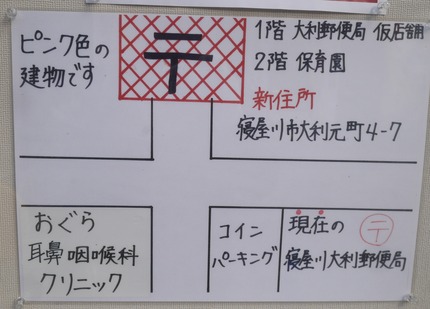 ピンク色の
建物です
〒
1階 大利郵便局 仮店舗
2階 保育園
新住所
寝屋川市大利元町4-7
おぐら
耳鼻咽喉科
クリニック
コイン
パーキング
現在の
寝屋川大利郵便局
〒